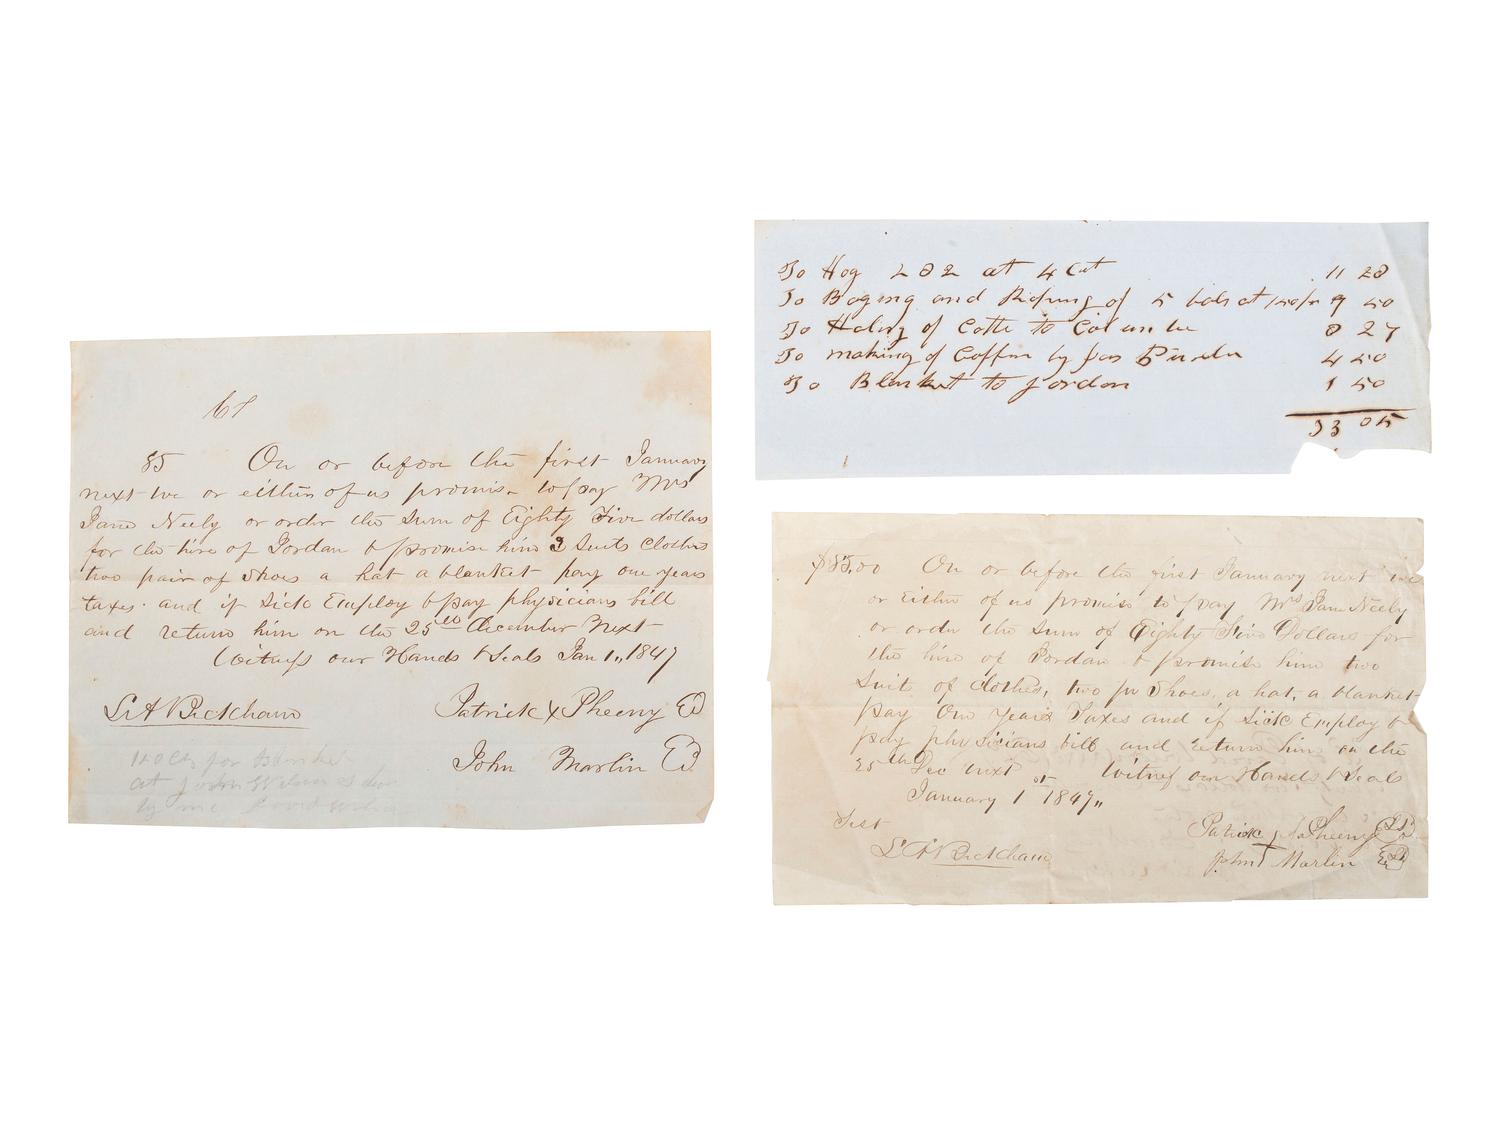 85 On or before the first January
next we or either of us promise to pay Mrs
Jane Neely or order the sum of Eighty Five dollars
for the hire of Jordan & promise him 3 suits Clothes
two pair of shoes a hat a blanket pay one years
taxes and if sick Employ & pay physicians bill
and return him on the 25th December Next
Witness our Hands & Seals Jan 1, 1847
Patrick x Pheeny
John Marlin
for Blanket
at John
by me
To Hog 282 at 4 Cut 11 28
To Baging and of 5 bals at 9 50
To Haling of Cotte to 8 27
To making of Coffin by Jas 4 50
To Blanket to Jordon 1 50
05
$85.00 On or before the first January next we
or either of us promise to pay Mrs Jane Neely
or order the sum of Eighty Five Dollars for
the hire of Jordan & promise him two
suit of clothes, two pr shoes, a hat, a blanket
pay One years Taxes and if sick Employ &
pay physicians bill and return him on the
25th Dec next Witness our Hands & Seals
January 1st 1847
Test
Patrick
John Marlin